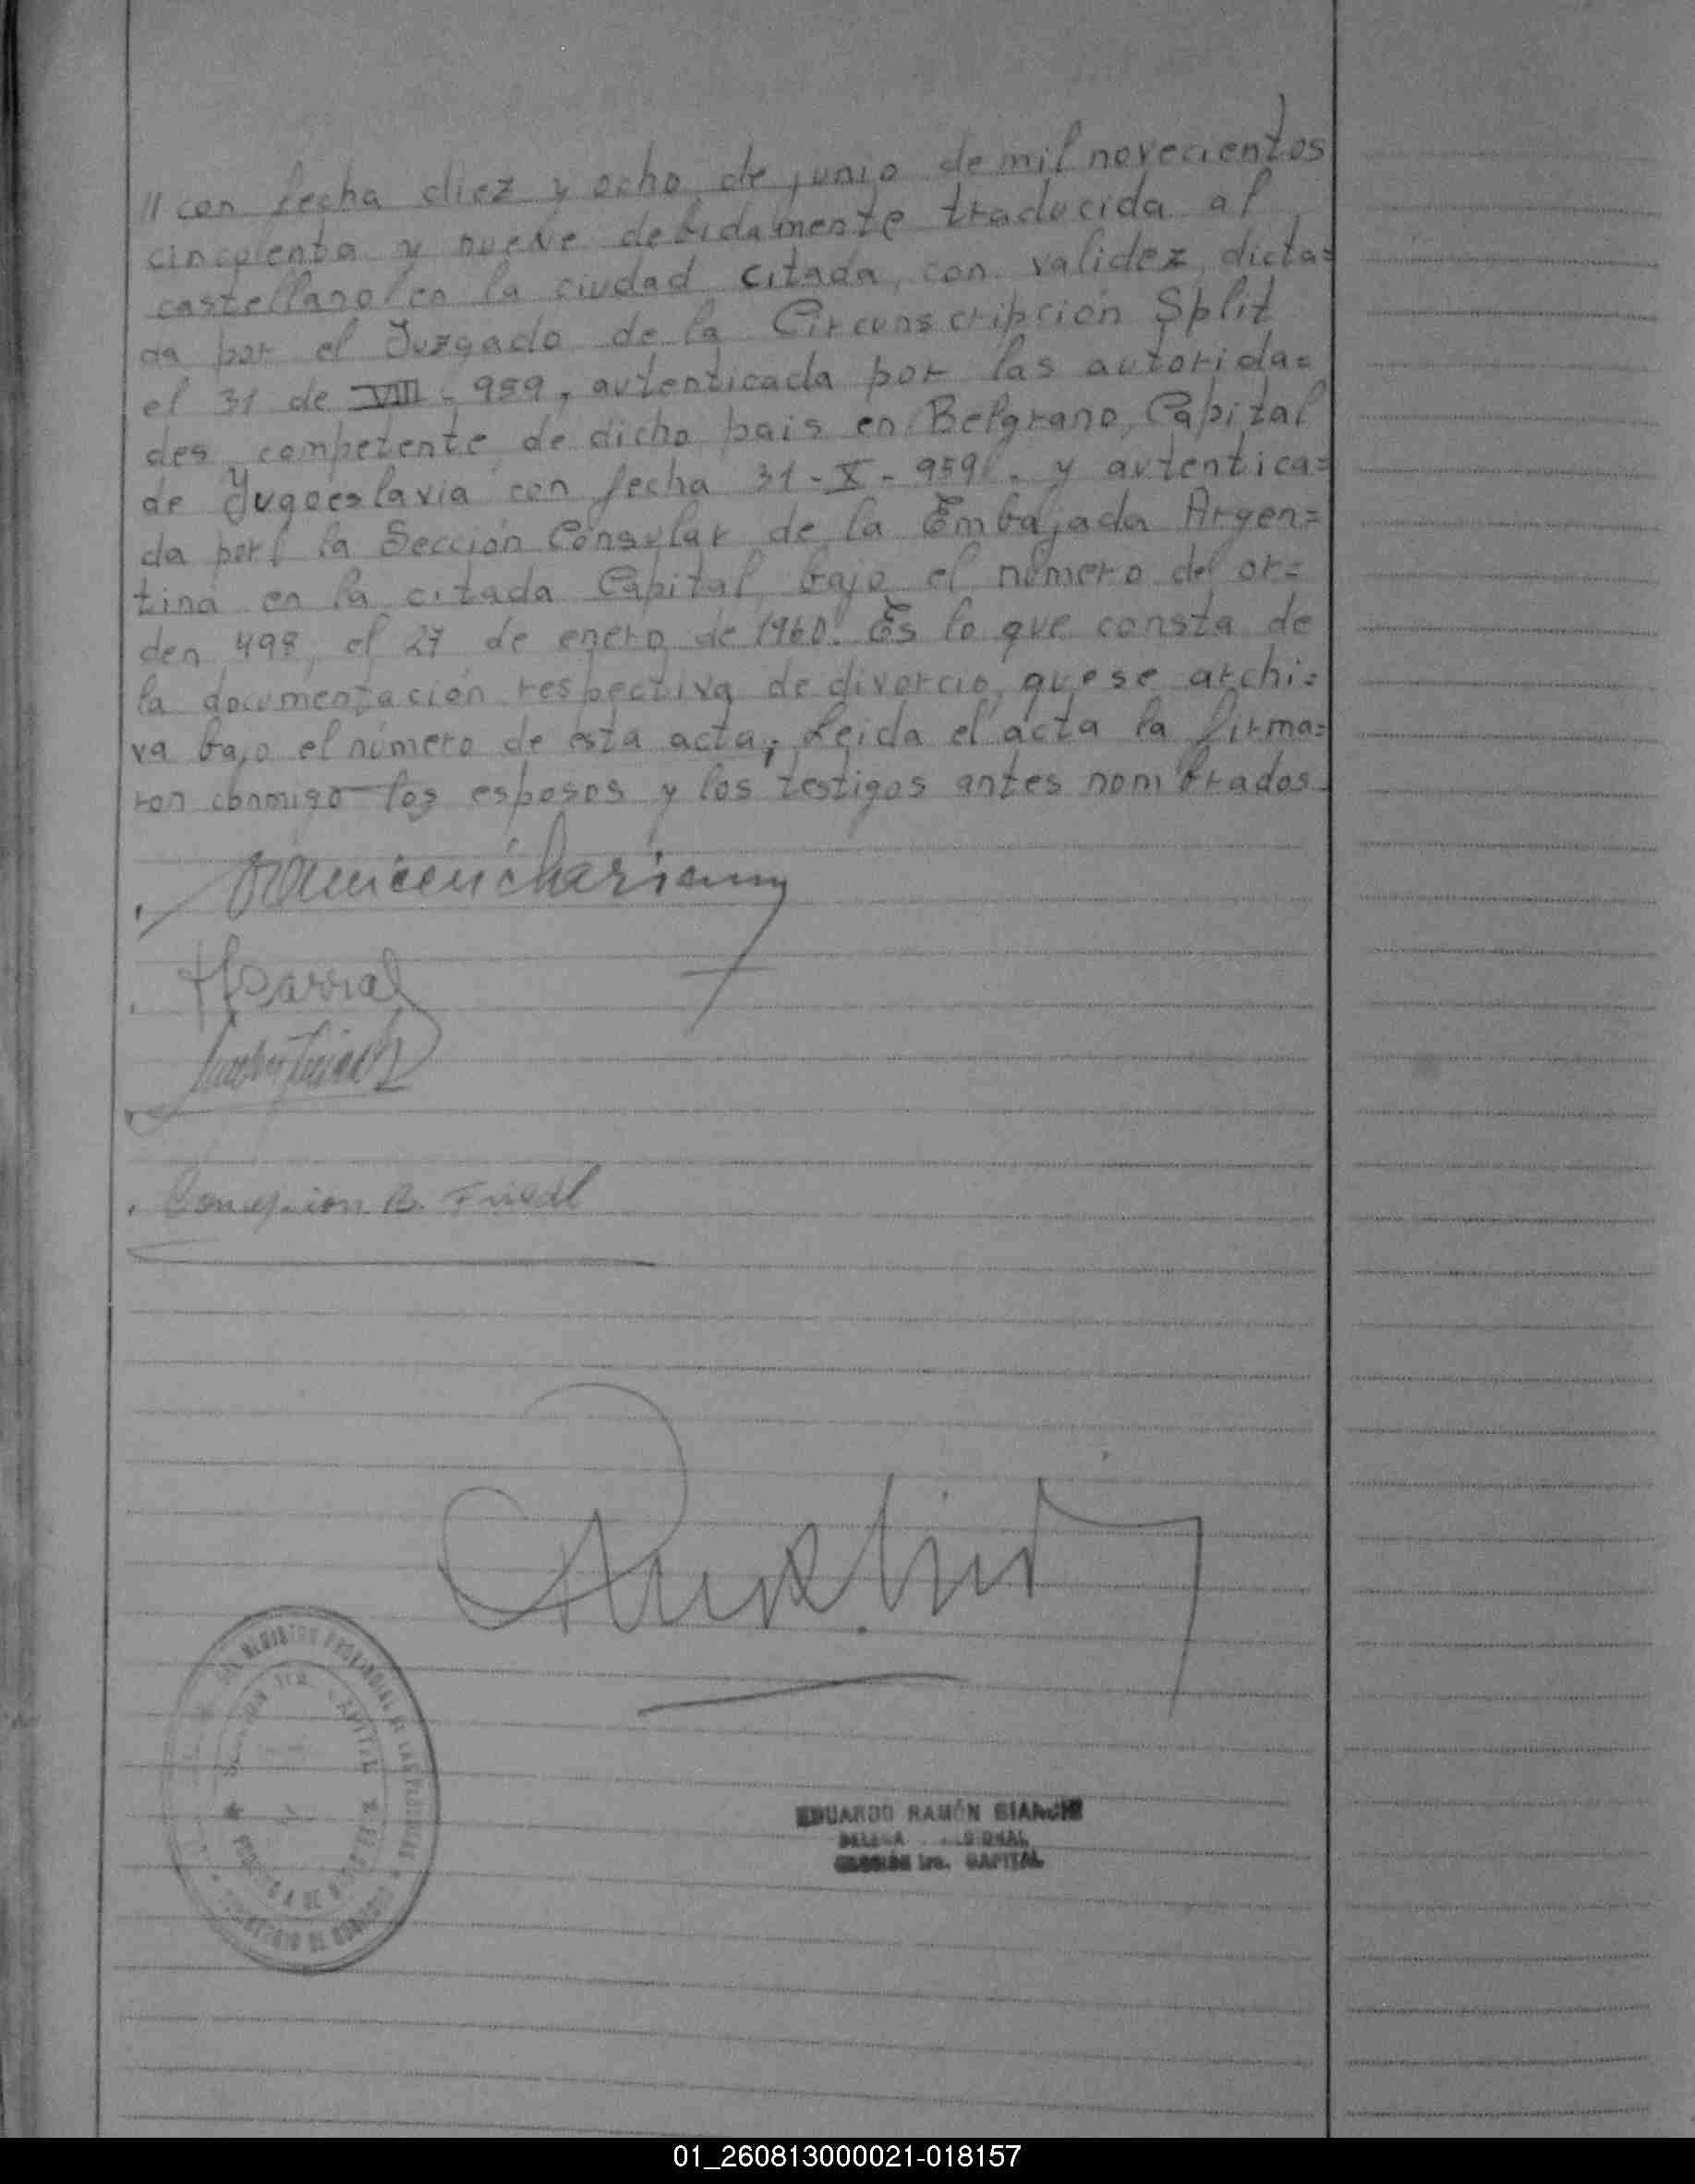 // con fecha diez y ocho de junio de mil novecientos
cincuenta y nueve debidamente traducida al
castellano en la ciudad citada, con validez dicta=
da por el Juzgado de la Circunscripción Split
el 31 de VIII - 959, autenticada por las autorida=
des competente de dicho pais en Belgrano, Capital
de Yugoeslavia con fecha 31-X-959. y autentica=
da por la Sección Cónsular de la Embajada Argen=
tina en la citada Capital, bajo el número del or=
den 498, el 27 de enero de 1960. Es lo que consta de
la documentación respectiva de divorcio, que se archi=
va bajo el número de ésta acta; Leida el acta la firma=
ron conmigo los esposos y los testigos antes nombrados.
HBarral
B. Friedl
REGISTRO PROVINCIAL DE LAS PERSONAS
CAPITAL
EDUARDO RAMÓN BIANCHI
SECCIÓN 1ra. CAPITAL
01_260813000021-018157